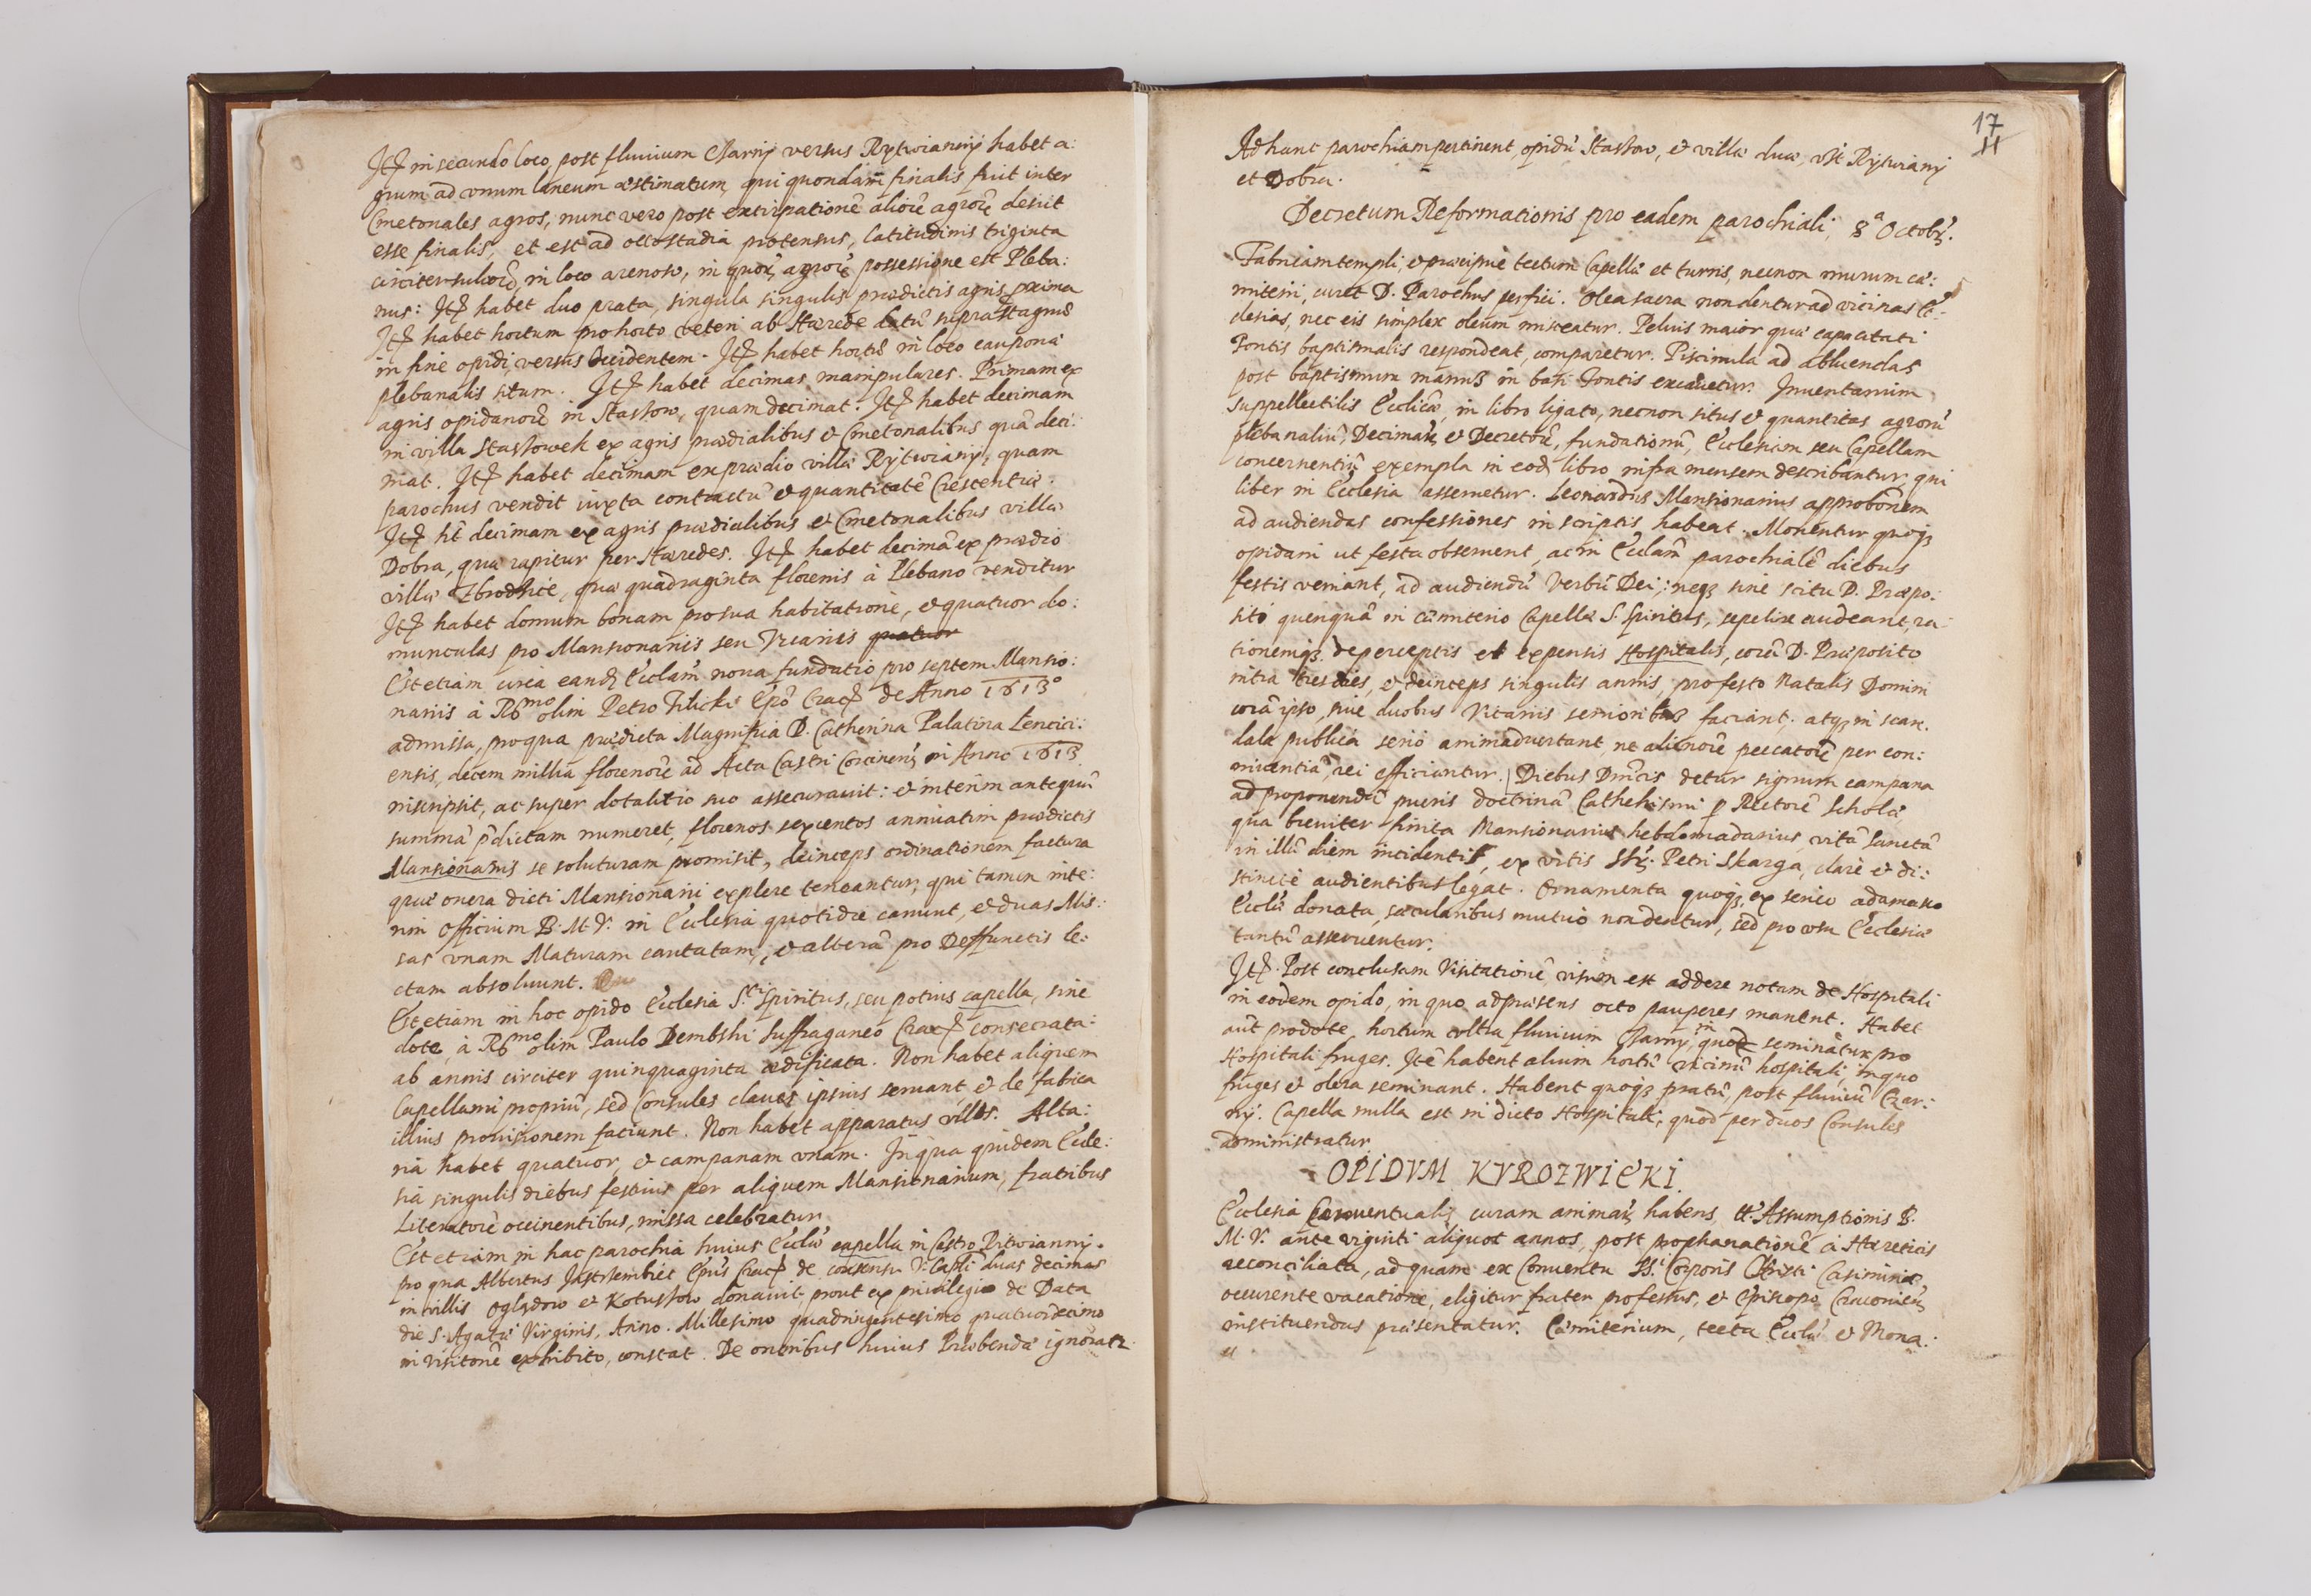 Itē in secundo loco post fluuium Csarnÿ versus Rytwianÿ habet a:
grum ad vnum laneum æstimatum, qui quondam finalis fuit inter
Cmetonales agros, nunc vero post extirpationē aliorū agrorū desiit
esse finalis, et est ad octo stadia protensus, latitudinis triginta
circiter sulcorū, in loco arenoso, in quorū agrorū possessione est Pleba:
nus: Itē habet duo prata, singula singulis prædictis agris proxima
Itē habet hortum pro horto veteri ab Hærede datū supra stagnū
in fine opidi, versus Occidentem. Itē habet hortū in loco cauponæ
plebanalis situm. Itē habet decimas manipulares. Primam ex
agris opidanorū in Stassow, quam decimat. Itē habet decimam
in villa Stassowek ex agris prædialibus & Cmetonalibus quā deci:
mat. Itē habet decimam ex prædio villæ Rÿtwianÿ, quam
parochus vendit iuxta contractū & quantitatē Crescentiæ.
Itē ht decimam ex agris prædialibus & Cmetonalibus villæ
Dobra, quæ rapitur per Hæredes. Itē habet decimā ex prædio
villæ Zbrodzice, quæ quadraginta florenis à Plebano venditur
Itē habet domum bonam pro sua habitatione, & quatuor do:
munculas pro Mansionariis seu Vicariis quatuor
Est etiam circa eandē Ecclām noua fundatio pro septem Mansio:
nariis à Rdmo olim Petro Tilicki Epō Cracē de Anno 1613°
admissa, pro qua prædicta Magnifica D. Catherina Palatina Lencici:
ensis, decem millia florenorū ad Acta Castri Corcinenē in Anno 1613
inscripsit, ac super dotalitio suo assecurauit: & interim antequā
summā p̄dictam numeret, florenos sexcentos annuatim prædictis
Mansionariis se soluturam promisit, deinceps ordinationem factura
quæ onera dicti Mansionarii explere teneantur, qui tamen inte:
rim Officium B. M. V. in Ecclesia quotidie canunt, & duas Mis:
sas vnam Maturam cantatam, & alterā pro Deffunctis le:
ctam absoluunt.
Est etiam in hoc opido Ecclesia S.cti Spiritus, seu potius capella, sine
dote, à Rdmo olim Paulo Dembski Suffraganeo Cracē consecrata:
ab annis circiter quinquaginta ædificata. Non habet aliquem
Capellanū propriū, sed Consules claues ipsius seruant, & de fabrica
illius prouisionem faciunt. Non habet apparatus vllos. Alta:
ria habet quatuor, & campanam vnam. In qua quidem Eccle:
sia singulis diebus festiuis per aliquem Mansionarium, fratribus
Literatorū occinentibus, missa celebratur
Est etiam in hac parochia huius Ecclæ capella in Castro Ritwianny.
pro qua Albertus Jastrsembiec Epūs Cracē de consensu V. Capli duas decimas
in villis Oglądow & Kotussow donauit, prout ex priuilegio de Data
die S. Agatæ Virginis, Anno. Millesimo quadringentesimo quatuordecimo
in visitonē exhibito, constat. De oneribus huius Præbendæ ignoratr.
17
11
Ad hanc parochiam pertinent, opidū Stassow, & villæ duæ, vst Rÿtwianÿ
et Dobra.
Decretum Reformationis pro eadem parochiali, 8a Octobr.
Fabricam templi, & præcipuè tectum Capellæ et turris, necnon murum cæ:
miterii, curet D. Parochus perfici. Olea sacra non dentur ad vicinas Ec:
clesias, nec eis simplex oleum misceatur. Peluis maior quæ capacitati
Fontis baptismalis respondeat, comparetur. Piscinula ad abluendas
post baptismum manus in basi Fontis excauetur. Inuentarium
suppellectilis Ecclicæ, in libro ligato, necnon situs & quantitas agrorū
plebanaliū, Decimarū & Decretorū, fundationū, Ecclesiam seu Capellam
concernentiū exempla in eodē libro infra mensem describantur, qui
liber in Ecclesia asseruetur. Leonardus Mansionarius approbōnem
ad audiendas confessiones in scriptis habeat. Monentur quoqȝ
opidani ut festa obseruent, ac in Ecclām parochialē diebus
festis veniant, ad audiendū Verbū Dei: neqȝ sine scitu D. Præpo:
siti quenquā in cæmiterio Capellæ S. Spiritus, sepelire audeant, ra:
tionemqȝ de perceptis et expensis Hospitalis, corā D. Præposito
intra tres dies, & deinceps singulis annis, pro festo Natalis Domini
corā ipso, siue duobus Vicariis senioribus faciant, atqȝ in scan:
dala publica seriò animaduertant ne alienorū peccatorū per con:
niuentiā, rei efficiantur. Diebus Dnicis detur signum campana
ad proponendā pueris doctrinā Cathehismi p Rectorē Scholæ
qua breuiter finita Mansionarius hebdomadarius, vitā Sanctā
in illū diem incidentis, ex vitis SSr. Petri Skarga, clarè & di:
stinctè audientibus legat. Ornamenta quoqȝ ex serico adamasco
Ecclæ donata, sæcularibus mutuò non dentur, sed pro vsu Ecclesiæ
tantū asseruentur.
Itē. Post conclusam Visitationē visum est addere notam de Hospitali
in eodem opido, in quo ad præsens octo pauperes manent. Habet
aūt pro dote, hortum vltra fluuium Csarny, in quo seminātur pro
Hospitali fruges. Itē habent alium hortū vicinū hospitali, in quo
fruges & olera seminant. Habent quoqȝ pratū, post fluuiū Czar:
nÿ. Capella nulla est in dicto Hospitali, quod per duos Consules
administratur
OPIDVM KVROZWIĘKI.
Ecclesia Conuentualis curam animarū habens, tt. Assumptionis B.
M. V. ante viginti aliquot annos, post prophanationē à Hæreticis
reconciliata, ad quam ex Conuentu SS.i Corporis Christi Casimiriæ,
occurente vacatione, eligitur frater professus, & Episcopo Cracouienȝ
instituendus præsentatur. Cæmiterium, tecta Ecclæ & Mona: